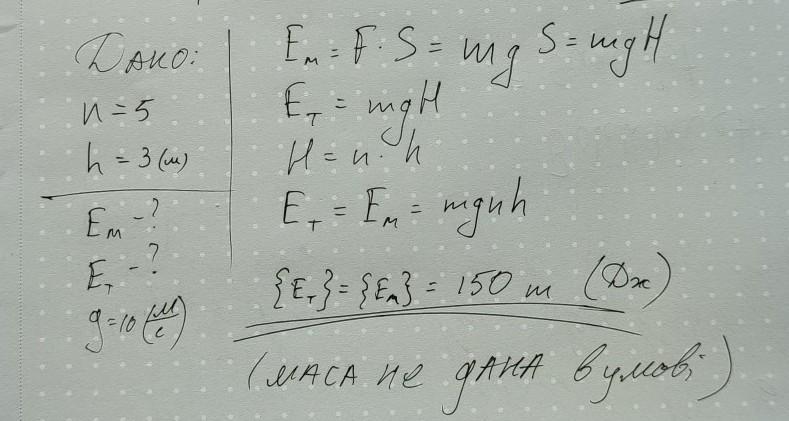 Дано:
n = 5
h = 3 (м)
Eм - ?
Eт - ?
g = 10 (м/с)
Eм = F · S = mg S = mgH
Eт = mgH
H = n · h
Eт = Eм = mgnh
{Eт} = {Eм} = 150 m (Дж)
(МАСА НЕ ДАНА в умові)